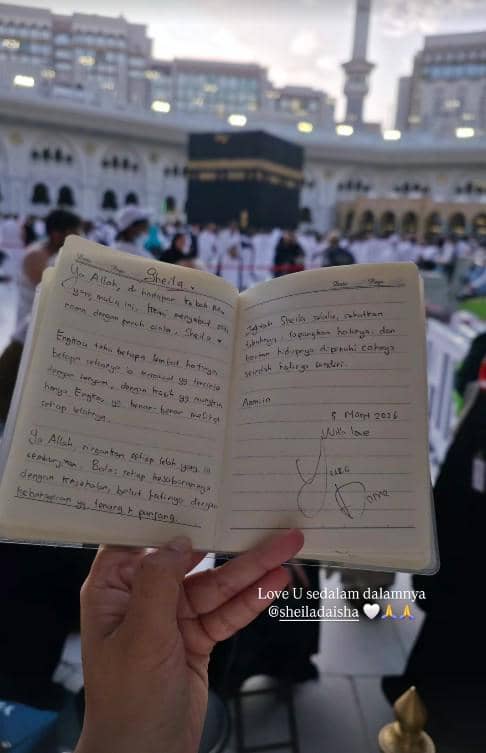 Sheila.
Ya Allah, di hadapan Ka'bah Mu
yang mulia ini, Kami menyebut satu
nama dengan penuh cinta, Sheila.
Engkau tahu betapa lembut hatinya
betapa seringnya ia memeluk yg
dengan senyum, dengan kasih yg mungkin
hanya Engkau yg benar-benar melihat
setiap lelahnya.
Ya Allah, ringankan setiap lelah yang ia
sembunyikan. Balas setiap kesabarannya
dengan kesehatan, balut hatinya dengan
kebahagiaan yg tenang & panjang.
Date: Page:
Jagalah Sheila selalu, sehatkan
tubuhnya, lapangkan hatinya, dan
biarkan hidupnya dipenuhi cahaya
seindah hatinya sendiri.
Aamiin
8 Maret 2026
With love
Love U sedalam dalamnya
@sheiladaisha 🤍🙏🙏